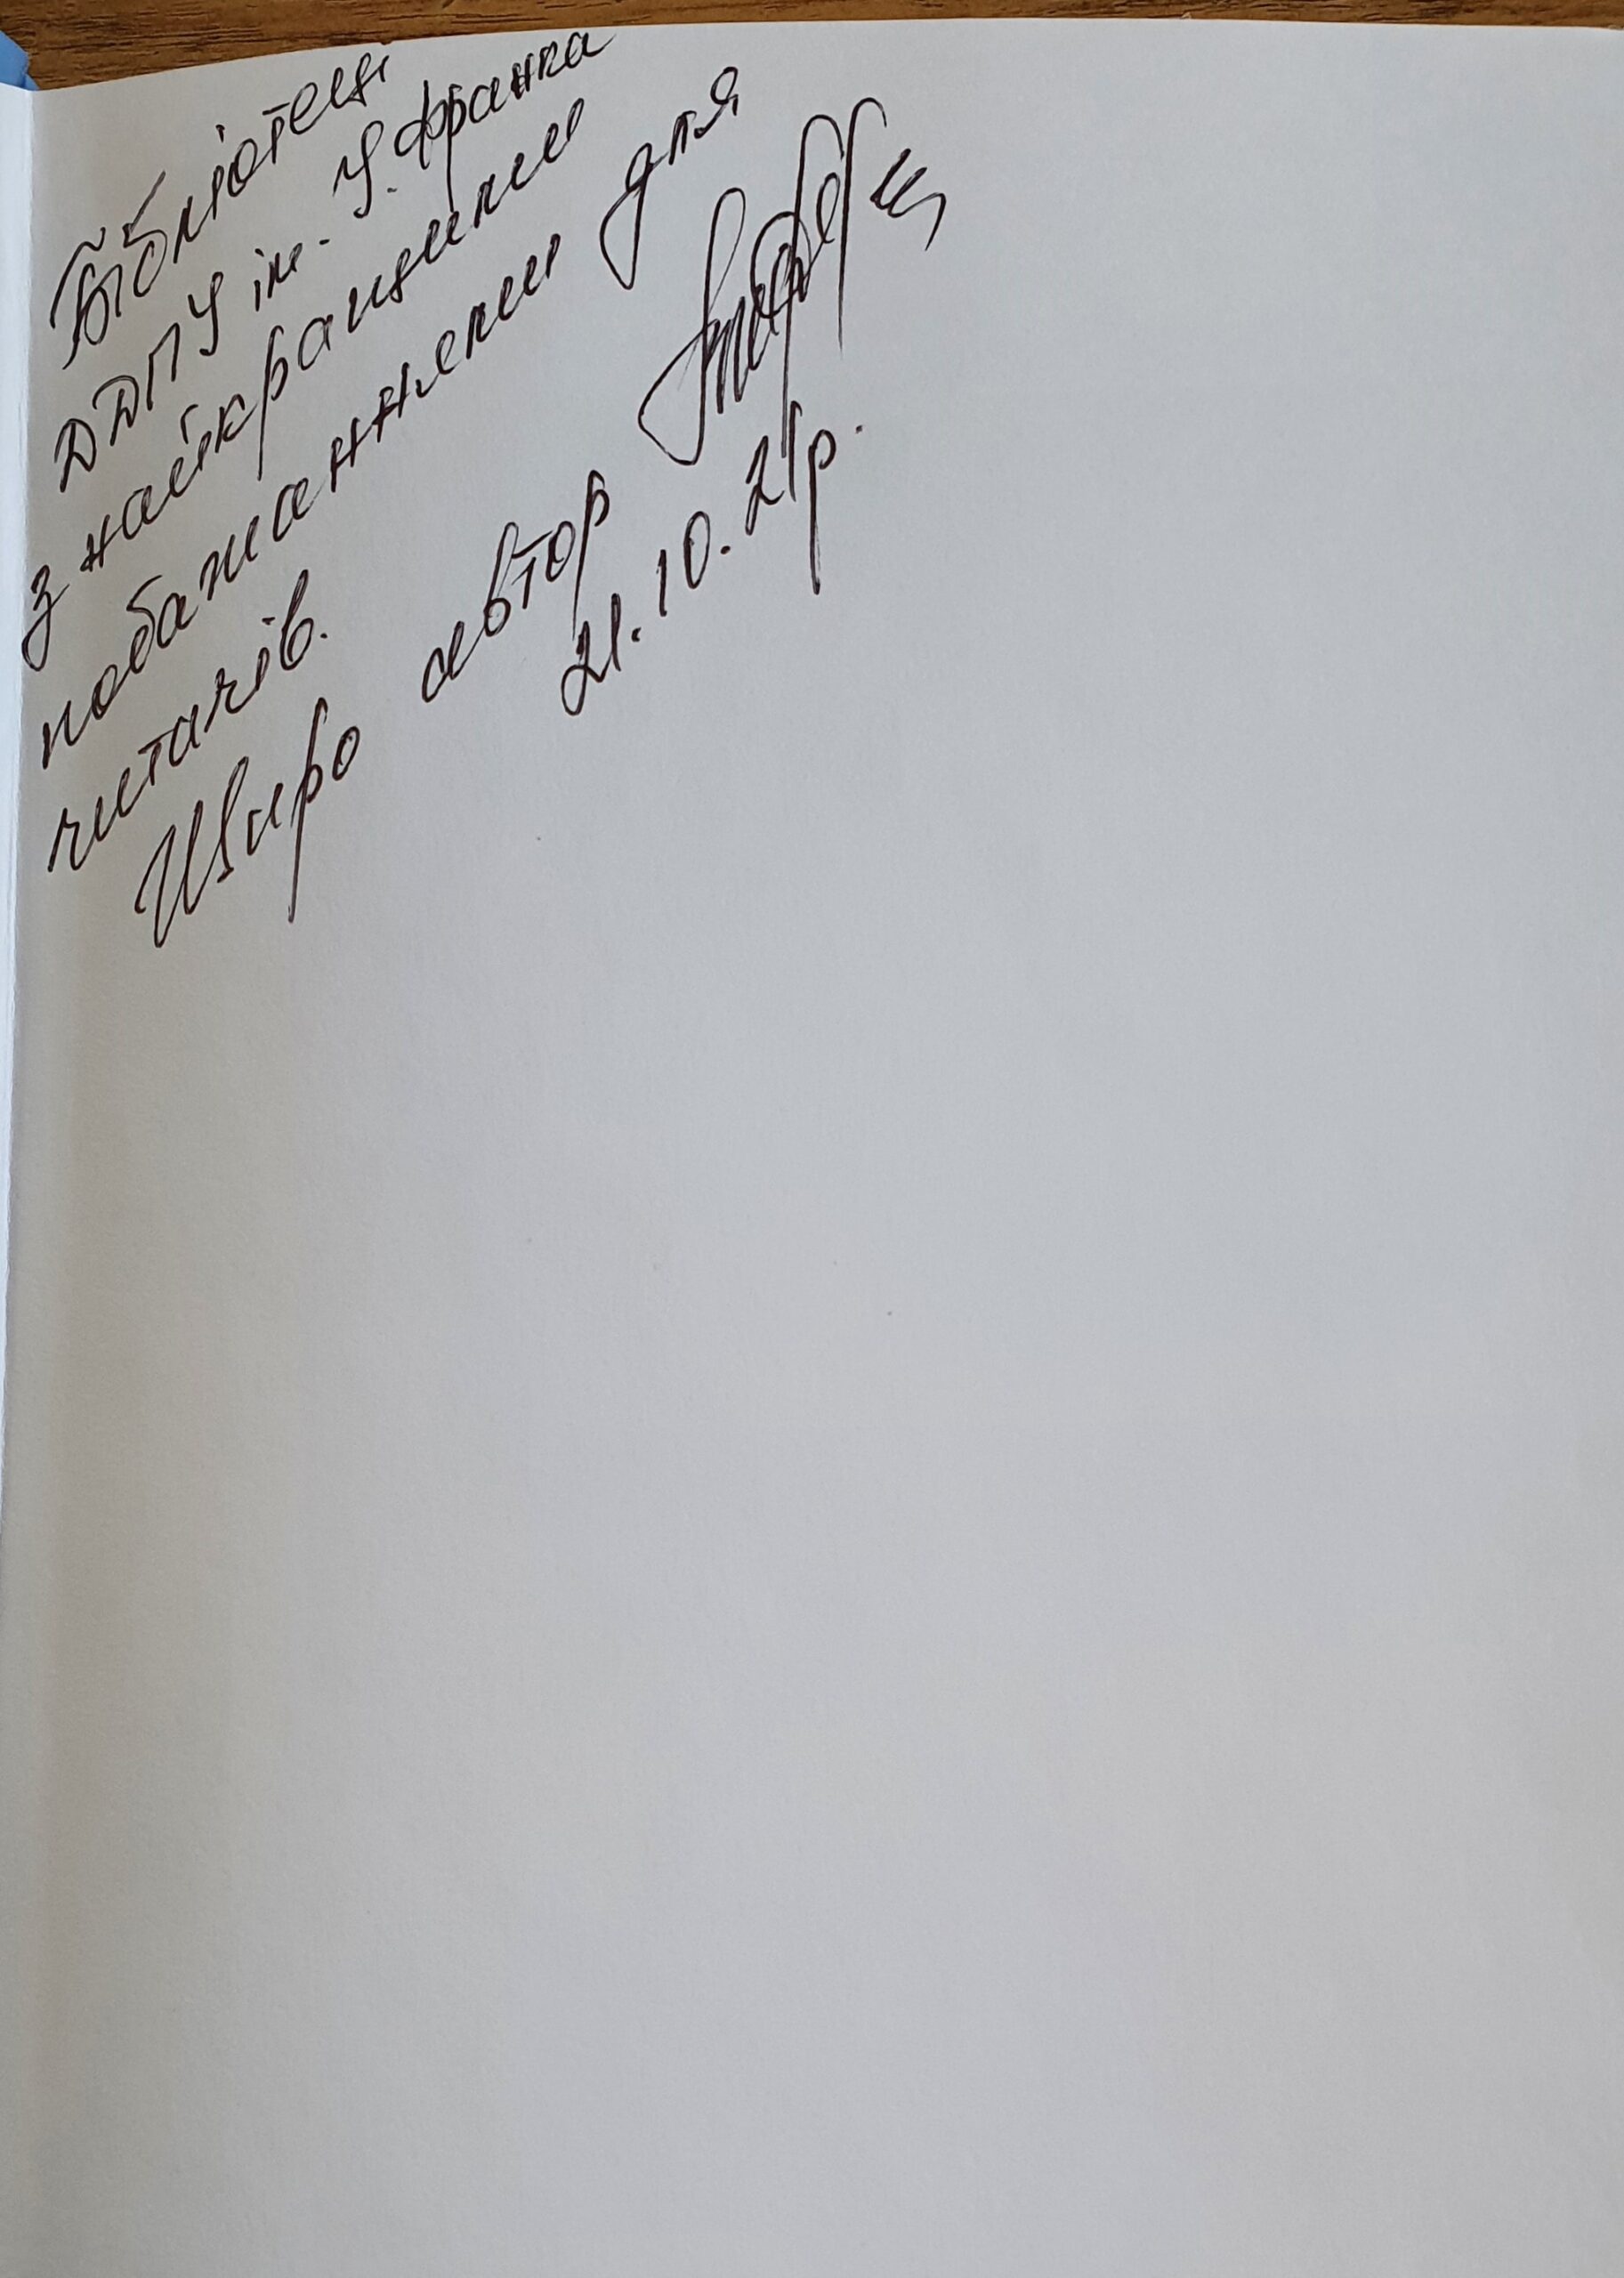 Бібліотеці
ДДПУ ім. І. Франка
з найкращими
побажаннями для
читачів.
Щиро автор
21.10.21р.